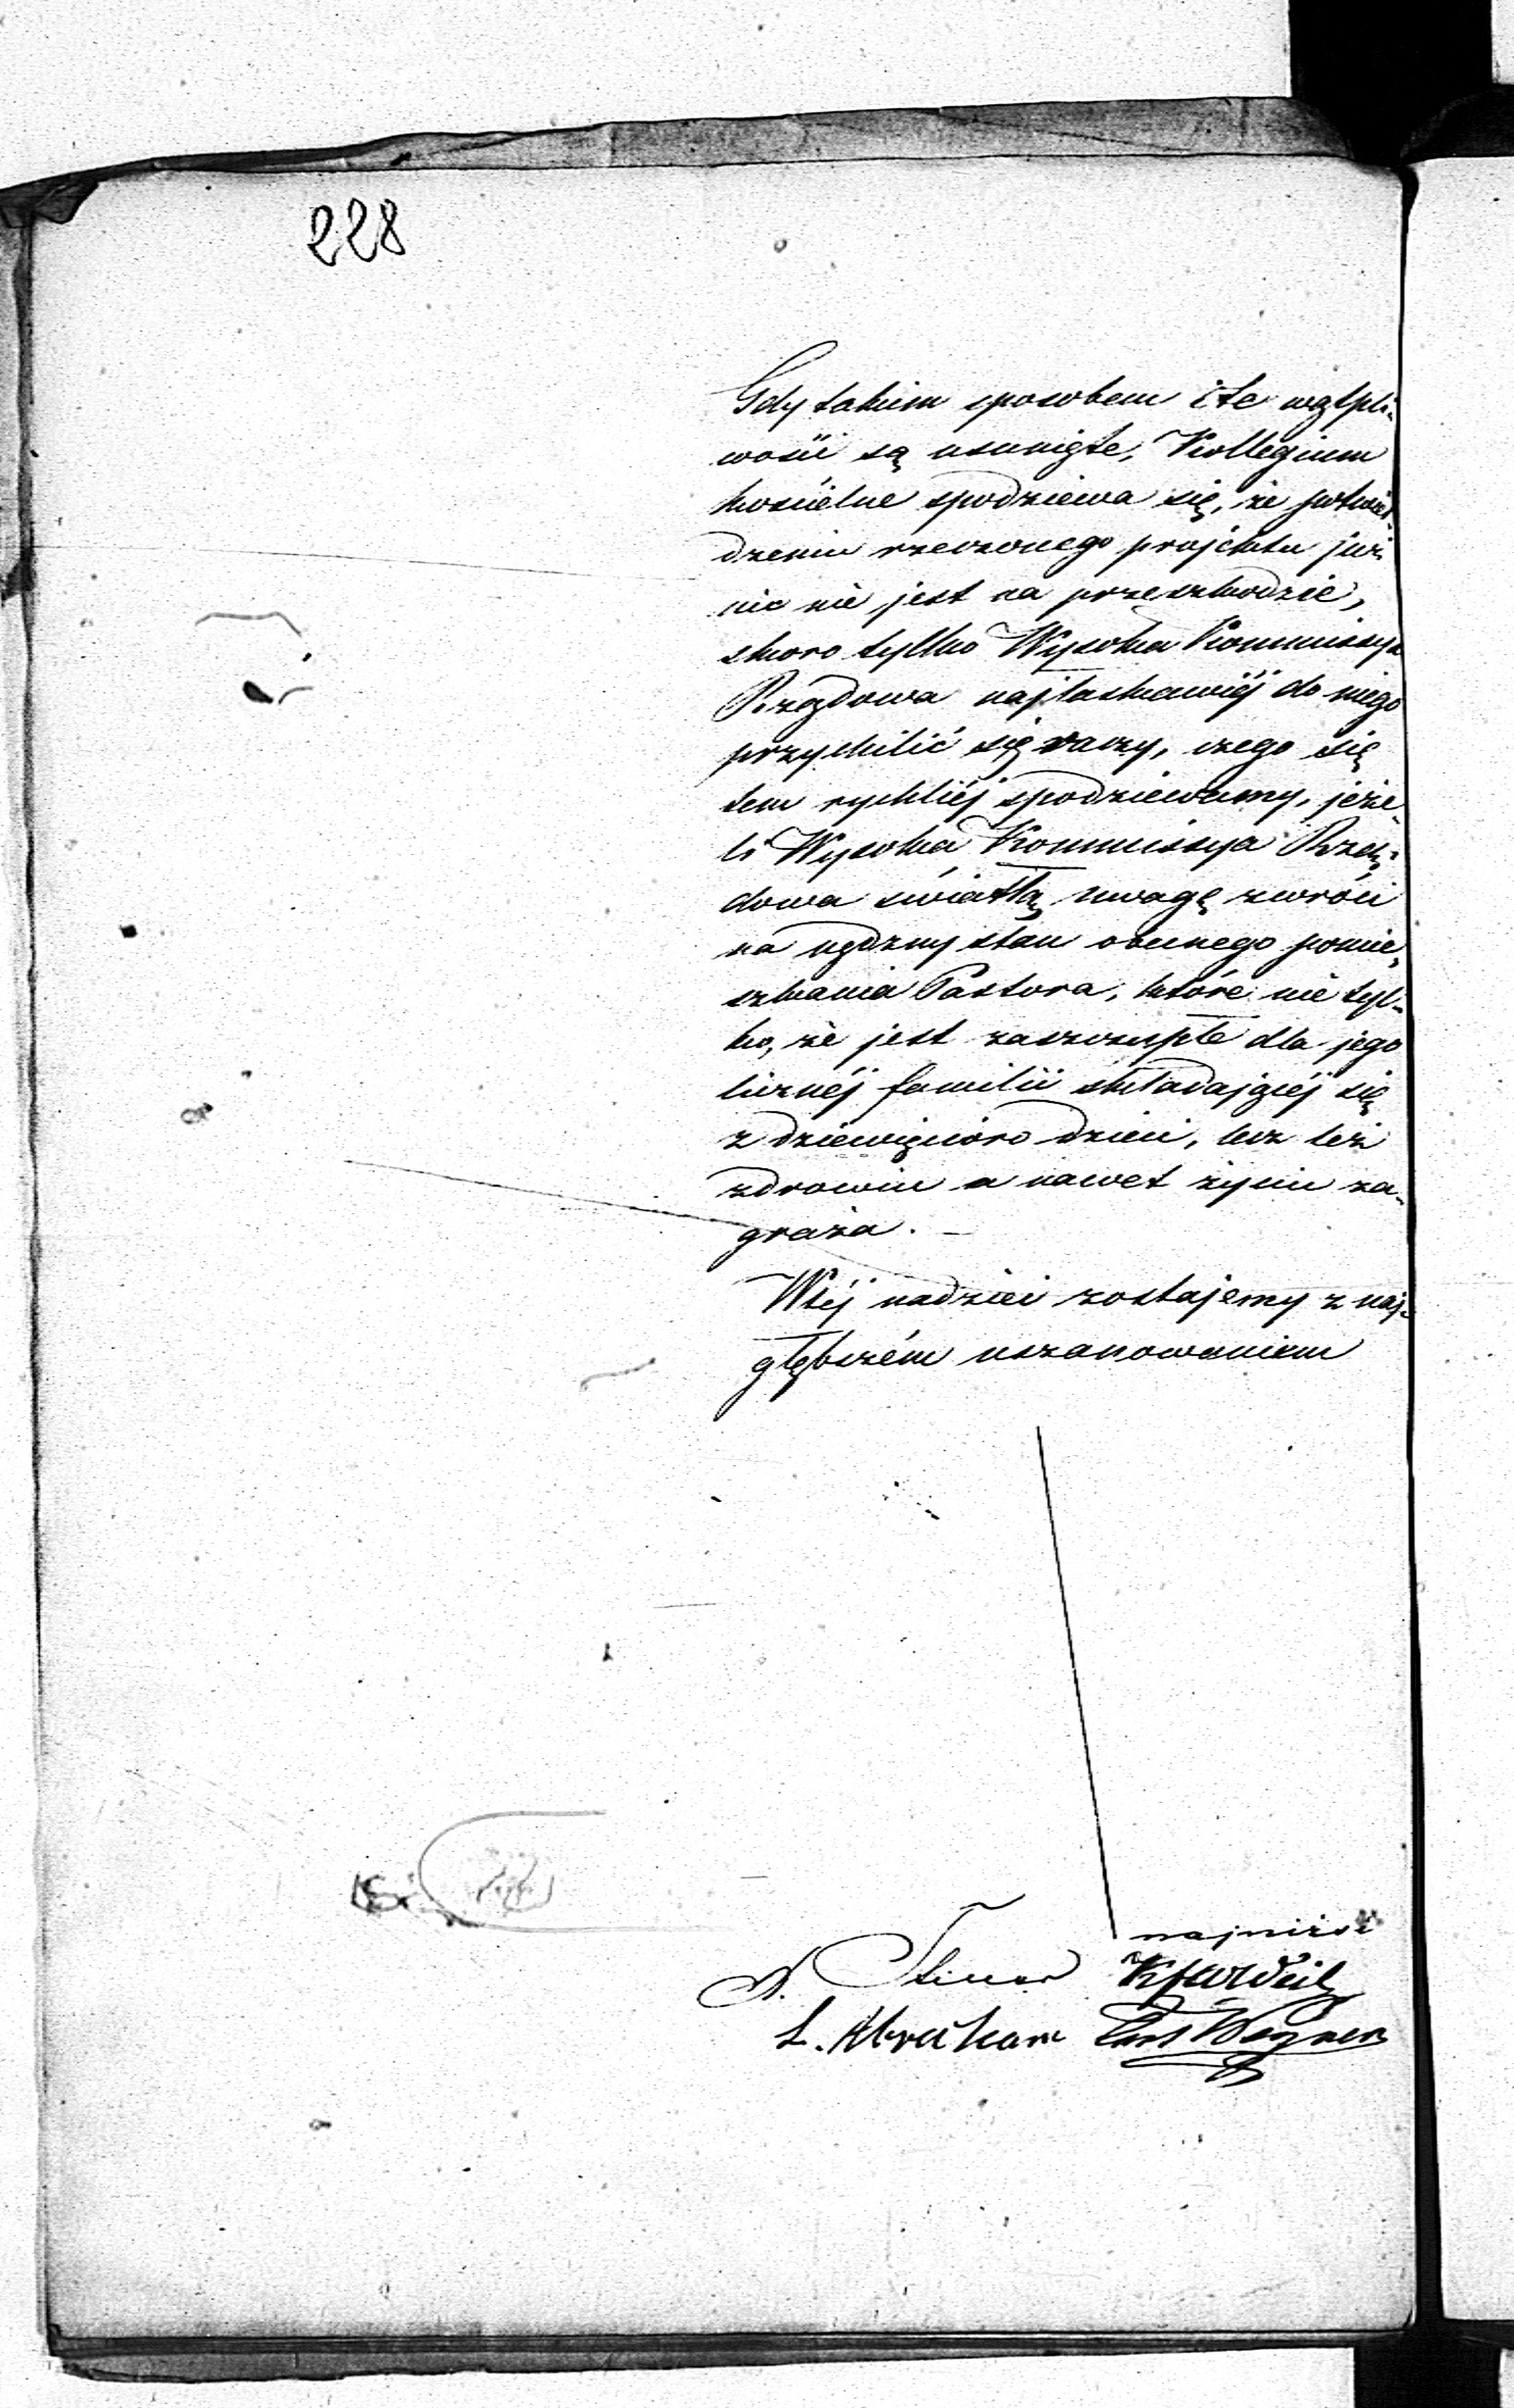 228
Gdy takim sposobem i te wątpli-
wości są usunięte, Kollegium
kościelne spodziewa się, że potwier-
dzeniu rzeczonego projektu już
nic nie jest na przeszkodzie,
skoro tylko Wysoka Kommissya
Rządowa najłaskawiéj do niego
przychilić się raczy, czego się
tem rychléj spodziewamy, jeże-
li Wysoka Kommissya Rzą-
dowa światłą uwagę zwróci
na nędzny stan obecnego pomie-
szkania Pastora, które nie tyl-
ko, że jest zaszczupłe dla jego
licznéj familii składającéj się
z dziewięcioro dzieci, lecz też
zdrowiu a nawet życiu za-
graża. –
W téj nadziei zostajemy z naj-
głębszém uszanowaniem
najniżsi
A.
L. Abraham Wegner